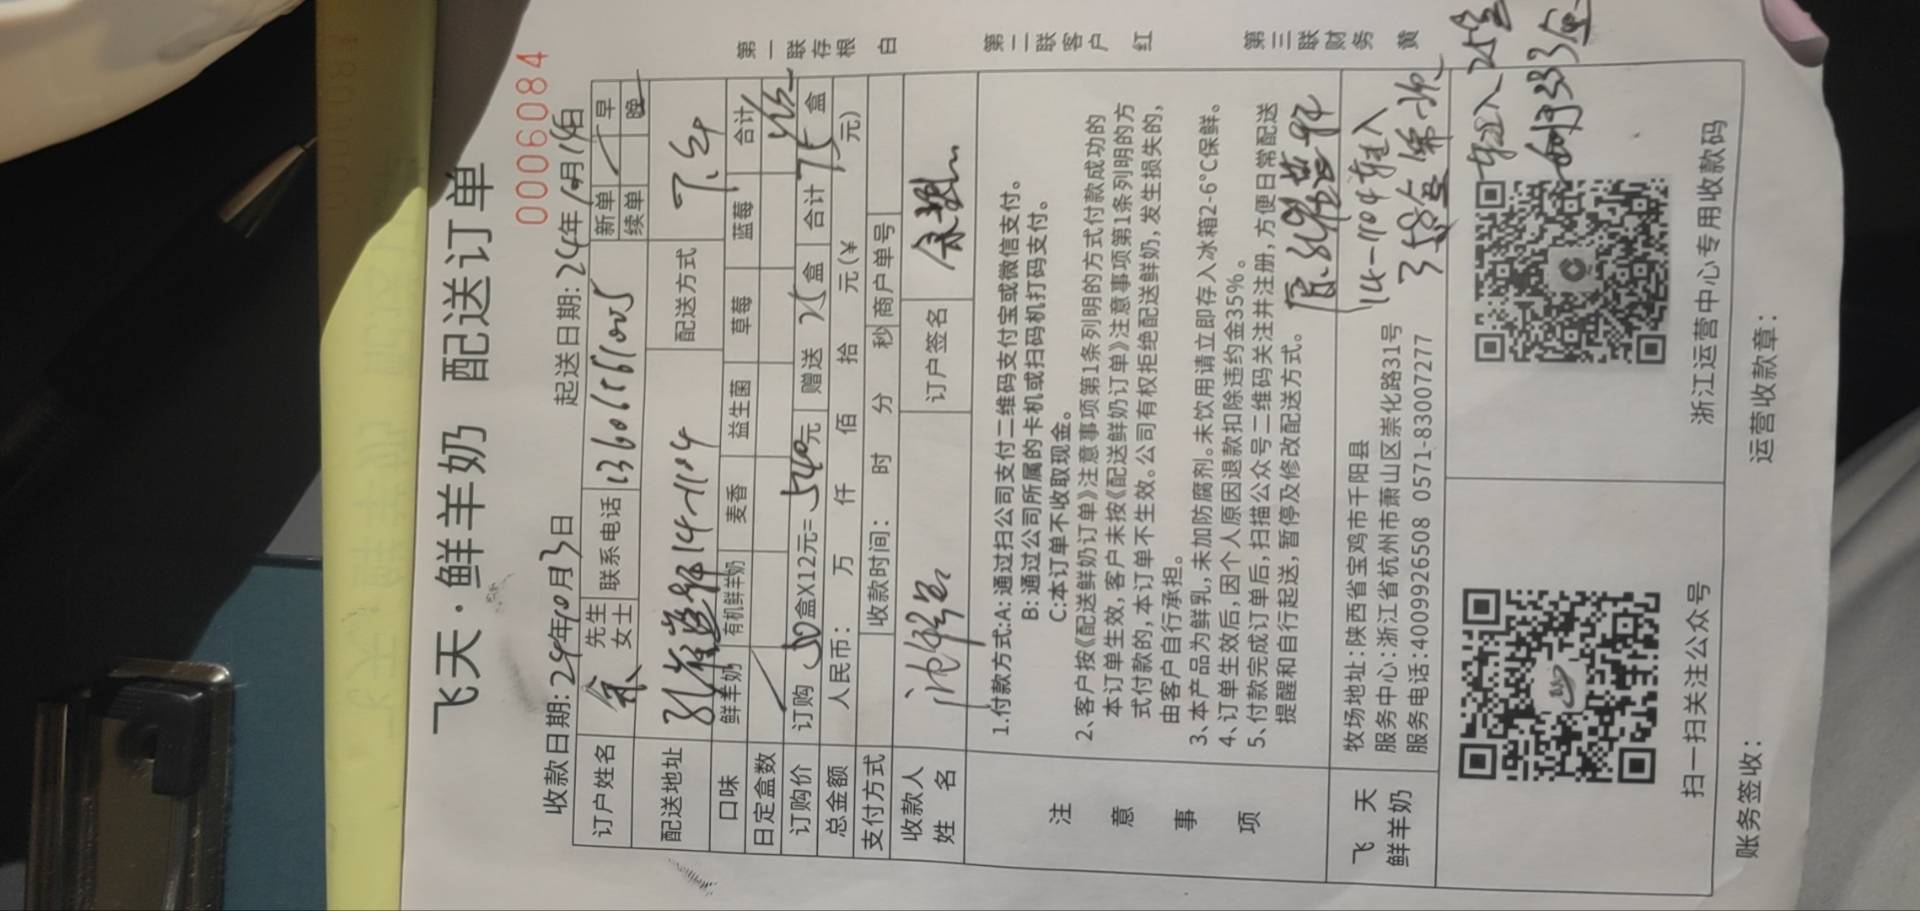 飞天·鲜羊奶 配送订单
0006084
收款日期：24年10月3日
起送日期：24年10月16日
订户姓名 余 先生 女士 联系电话 13606561005 新单 早
续单 晚
配送地址 14-1104 配送方式
口味 鲜羊奶 有机鲜羊奶 麦香 益生菌 草莓 蓝莓 合计
日定盒数
订购价 订购 50盒X12元=540元 赠送 25盒 合计 75盒
总金额 人民币： 万 仟 佰 拾 元(¥ 元)
支付方式 收款时间： 时 分 秒 商户单号
收款人姓名 订户签名
注意事项
1.付款方式:A:通过扫公司支付二维码支付宝或微信支付。
B:通过公司所属的卡机或扫码机打码支付。
C:本订单不收取现金。
2、客户按《配送鲜奶订单》注意事项第1条列明的方式付款成功的
本订单生效,客户未按《配送鲜奶订单》注意事项第1条列明的方
式付款的,本订单不生效。公司有权拒绝配送鲜奶,发生损失的,
由客户自行承担。
3、本产品为鲜乳,未加防腐剂。未饮用请立即存入冰箱2-6°C保鲜。
4、订单生效后,因个人原因退款扣除违约金35%。
5、付款完成订单后,扫描公众号二维码关注并注册,方便日常配送
提醒和自行起送,暂停及修改配送方式。
飞天
鲜羊奶
牧场地址:陕西省宝鸡市千阳县
服务中心:浙江省杭州市萧山区崇化路31号
服务电话:4009926508 0571-83007277
14-1104转入
358盒
转入25盒
333盒
扫一扫关注公众号
浙江运营中心专用收款码
账务签收：
运营收款章：
第一联存根 白
第二联客户 红
第三联财务 黄